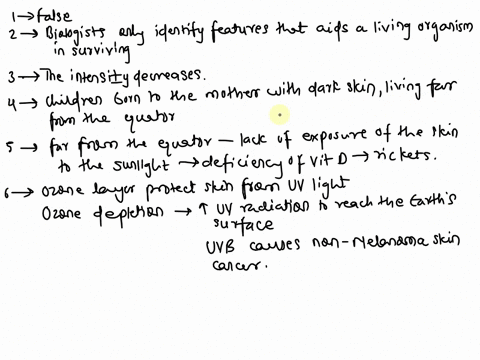 1→ false
2→ Biologists only identify features that aids a living organism
in surviving
3→ The intensity decreases.
4→ Children born to the mother with dark skin, living far
from the equator
5→ far from the equator – lack of exposure of the skin
to the sunlight → deficiency of Vit D → rickets.
6→ Ozone layer protect skin from UV light
Ozone depletion → ↑ UV radiation to reach the Earth's
surface
UVB causes non-Melanoma skin
cancer.